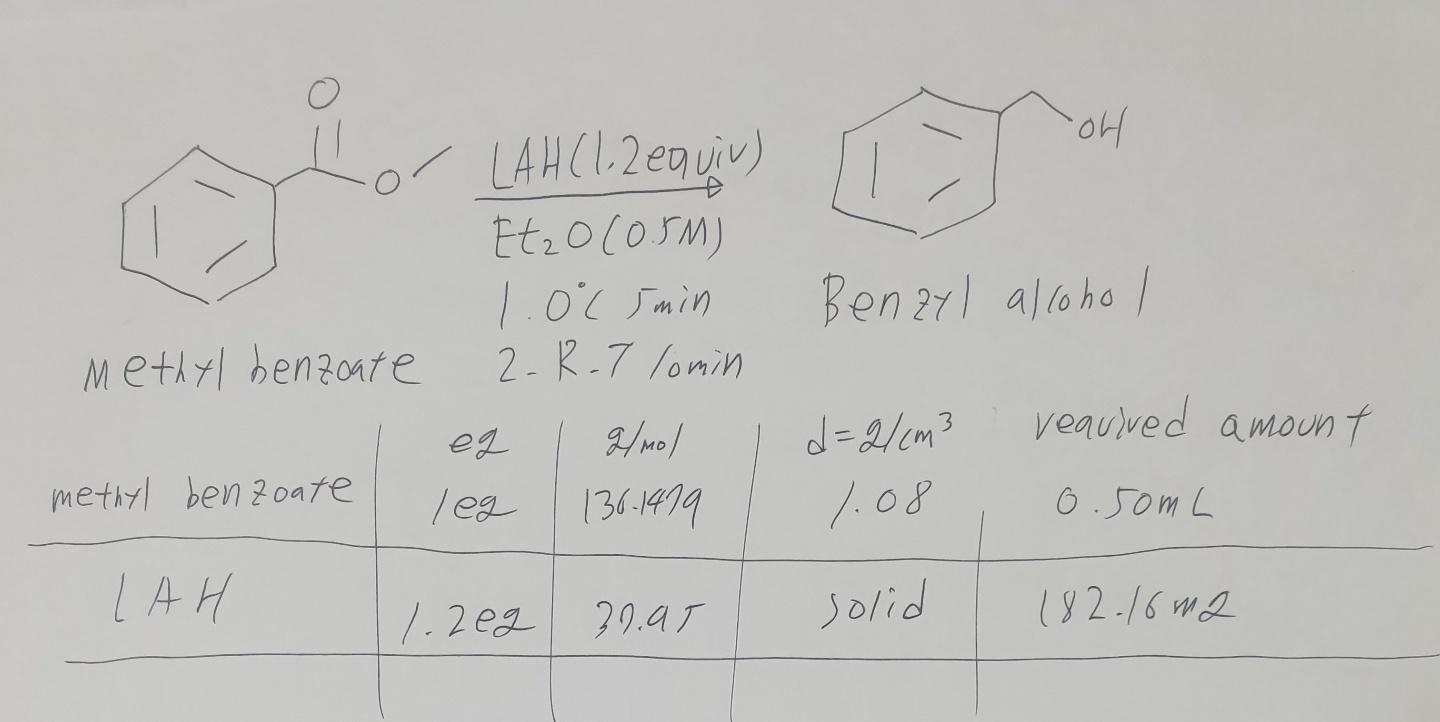 O
O
LAH(1.2equiv)
OH
Et₂O(0.5M)
1.0°C 5min
Benzyl alcohol
Methyl benzoate
2-R.T 10min
eq g/mol d=g/cm³ required amount
methyl benzoate 1eq 136.1479 1.08 0.50mL
LAH 1.2eq 37.95 solid 182.16mg